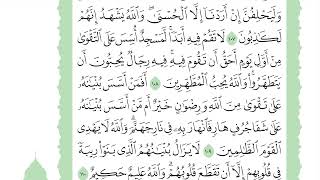 وَلَيَحْلِفُنَّ إِنْ أَرَدْنَا إِلَّا الْحُسْنَىٰ وَاللَّهُ يَشْهَدُ إِنَّهُمْ
لَكَاذِبُونَ ١٠٧ لَا تَقُمْ فِيهِ أَبَدًا لَمَسْجِدٌ أُسِّسَ عَلَى التَّقْوَىٰ
مِنْ أَوَّلِ يَوْمٍ أَحَقُّ أَنْ تَقُومَ فِيهِ فِيهِ رِجَالٌ يُحِبُّونَ أَنْ
يَتَطَهَّرُوا وَاللَّهُ يُحِبُّ الْمُطَّهِّرِينَ ١٠٨ أَفَمَنْ أَسَّسَ بُنْيَانَهُ
عَلَىٰ تَقْوَىٰ مِنَ اللَّهِ وَرِضْوَانٍ خَيْرٌ أَمْ مَنْ أَسَّسَ بُنْيَانَهُ
عَلَىٰ شَفَا جُرُفٍ هَارٍ فَانْهَارَ بِهِ فِي نَارِ جَهَنَّمَ وَاللَّهُ لَا يَهْدِي
الْقَوْمَ الظَّالِمِينَ ١٠٩ لَا يَزَالُ بُنْيَانُهُمُ الَّذِي بَنَوْا رِيبَةً
فِي قُلُوبِهِمْ إِلَّا أَنْ تَقَطَّعَ قُلُوبُهُمْ وَاللَّهُ عَلِيمٌ حَكِيمٌ ١١٠